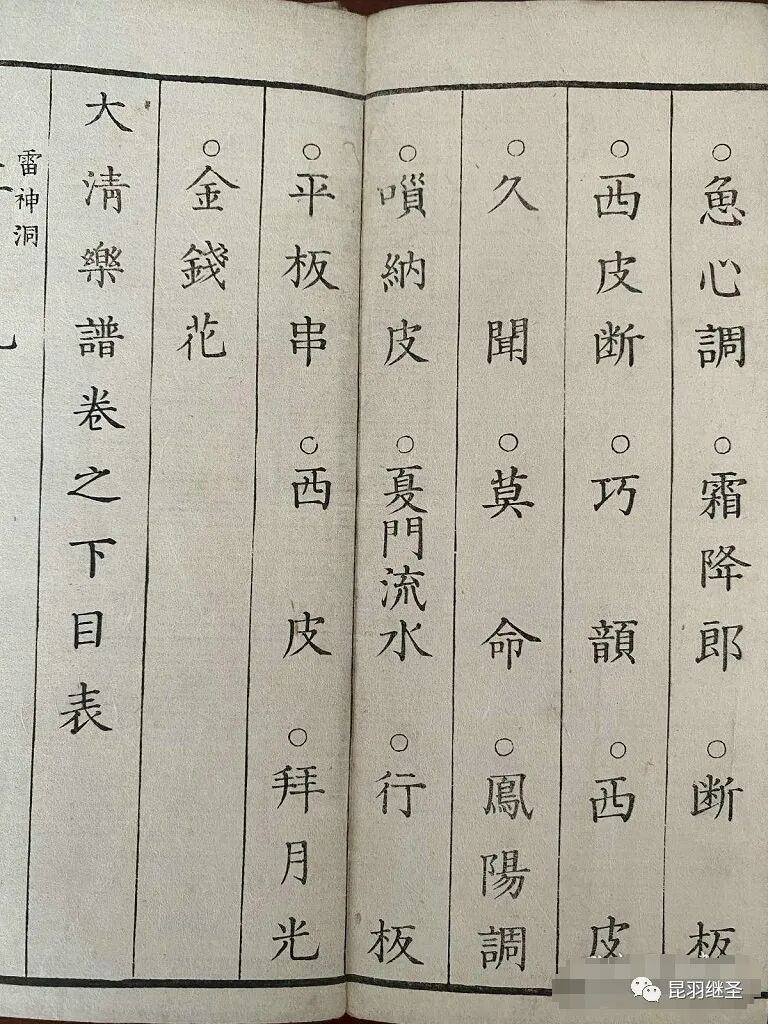 ○魚心調○霜降郎○断板
○西皮断○巧韻○西皮
○久聞○莫命○鳳陽調
○嗩納皮○戞門流水○行板
○平板串○西皮○拜月光
○金錢花
大清樂譜卷之下目表
雷神洞
昆羽继圣